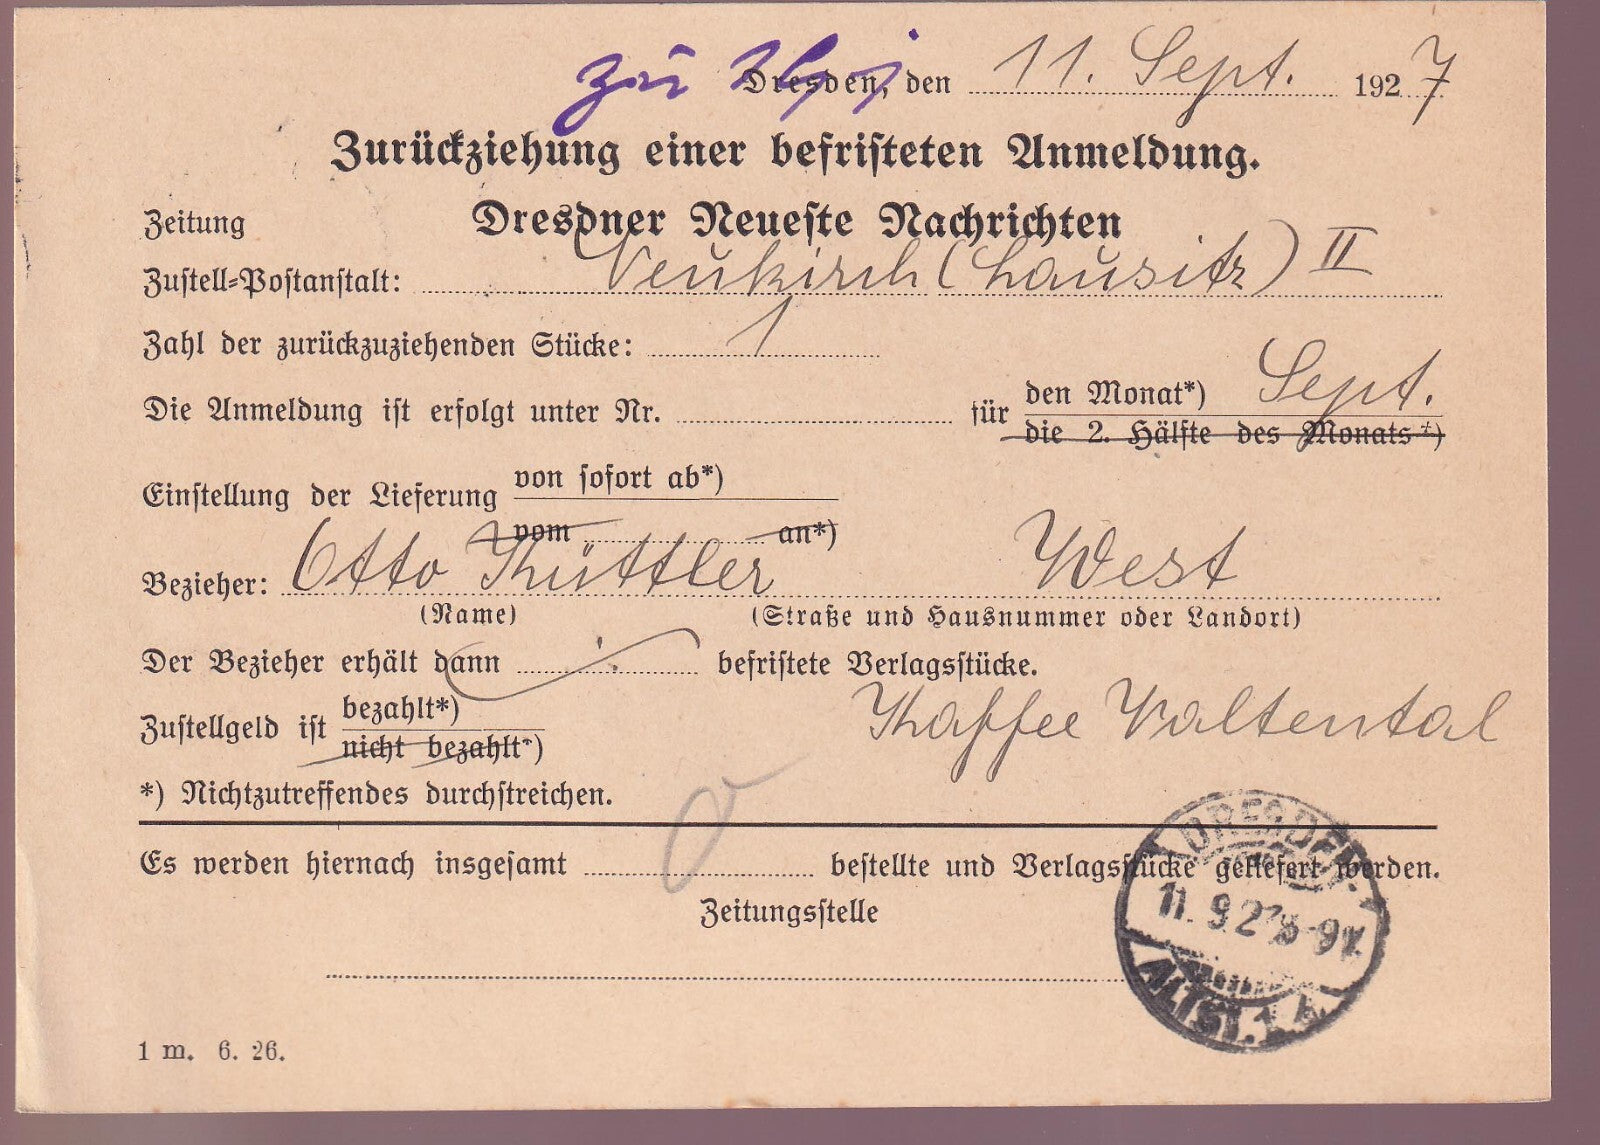 Dresden, den 11. Sept. 1927
Zurückziehung einer befristeten Anmeldung.
Zeitung Dresdner Neueste Nachrichten
Zustell-Postanstalt: Neukirch (Lausitz) II
Zahl der zurückzuziehenden Stücke: 1
Die Anmeldung ist erfolgt unter Nr. für den Monat*) Sept.
die 2. Hälfte des Monats*)
Einstellung der Lieferung von sofort ab*)
vom an*)
Bezieher: Otto West
(Name) (Straße und Hausnummer oder Landort)
Der Bezieher erhält dann befristete Verlagsstücke.
Kaffee Valtental
Zustellgeld ist bezahlt*)
nicht bezahlt*)
*) Nichtzutreffendes durchstreichen.
Es werden hiernach insgesamt bestellte und Verlagsstücke geliefert werden.
Zeitungsstelle
DRESDEN-
11. 9. 27. 8-9V.
ALTST. 1
1 m. 6. 26.